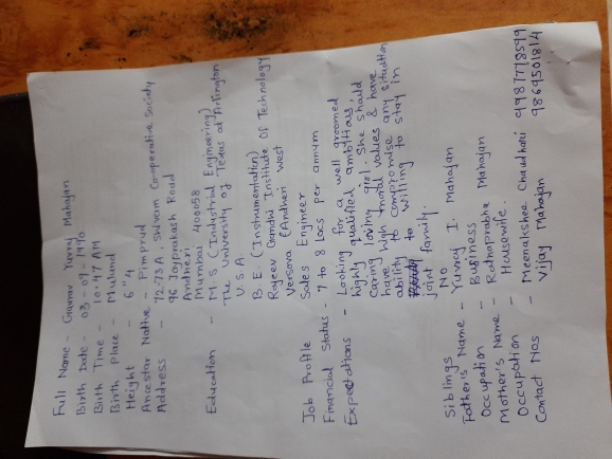 Full Name - Gaurav Yuvraj Mahajan
Birth Date - 03-09-1990
Birth Time - 10:47 AM
Birth Place - Mulund
Height - 6"4
Ancestar Native - Pimprud
Address - 72-73A, Satyam Co-operative Society
96 Jayprakash Road
Andheri
Mumbai 400058
Education - M-S (Industrial Engineering)
The University of Texas at Arlington
U.S.A
B.E (Instrumentation)
Rajeev Gandhi Institute Of Technology
Versova (Andheri West
Job Profile Sales Engineer
Financial Status - 7 to 8 Lacs per annum
Expectations - Looking for a well groomed
highly qualified ambitious,
caring loving girl. She should
have high moral values & have
ability to compromise any situation
to willing to stay in
joint family.
Siblings NO
Father's Name - Yuvraj I. Mahajan
Occupation - Business
Mother's Name - Ratnaprabha Mahajan
Occupation - Housewife.
Contact Nos - Meenakshee Chaudhari 9987778599
Vijay Mahajan 9869501814